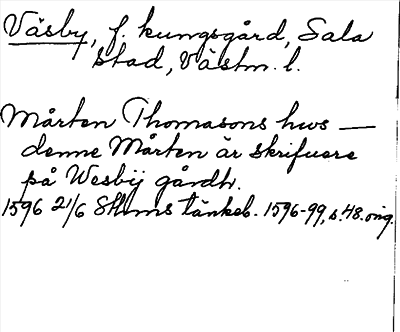 Väsby, f. kungsgård, Sala
stad, Västm. l.
Mårten Thomasons hws —
denne Mårten är skrifuere
på Wesbij gårdh.
1596 21/6 Sthms tänkeb. 1596-99, s.48. orig.